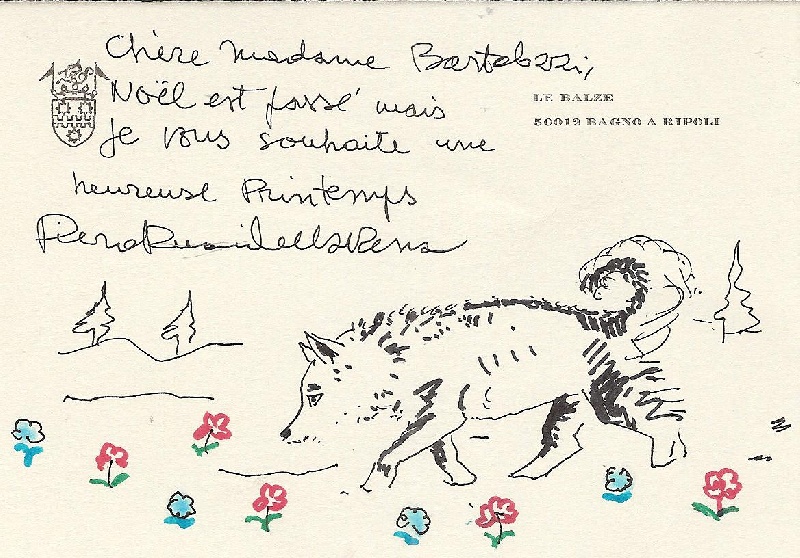 Chère Madame Bartolozzi,
Noël est passé mais
je vous souhaite une
heureuse Printemps
LE BALZE
50012 BAGNO A RIPOLI